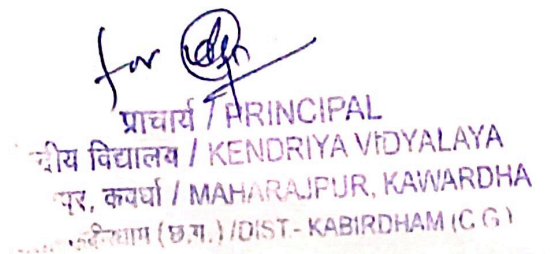 for
प्राचार्य / PRINCIPAL
द्रीय विद्यालय / KENDRIYA VIDYALAYA
पुर, कवर्धा / MAHARAJPUR, KAWARDHA
(छ.ग.) / DIST.- KABIRDHAM (C G)